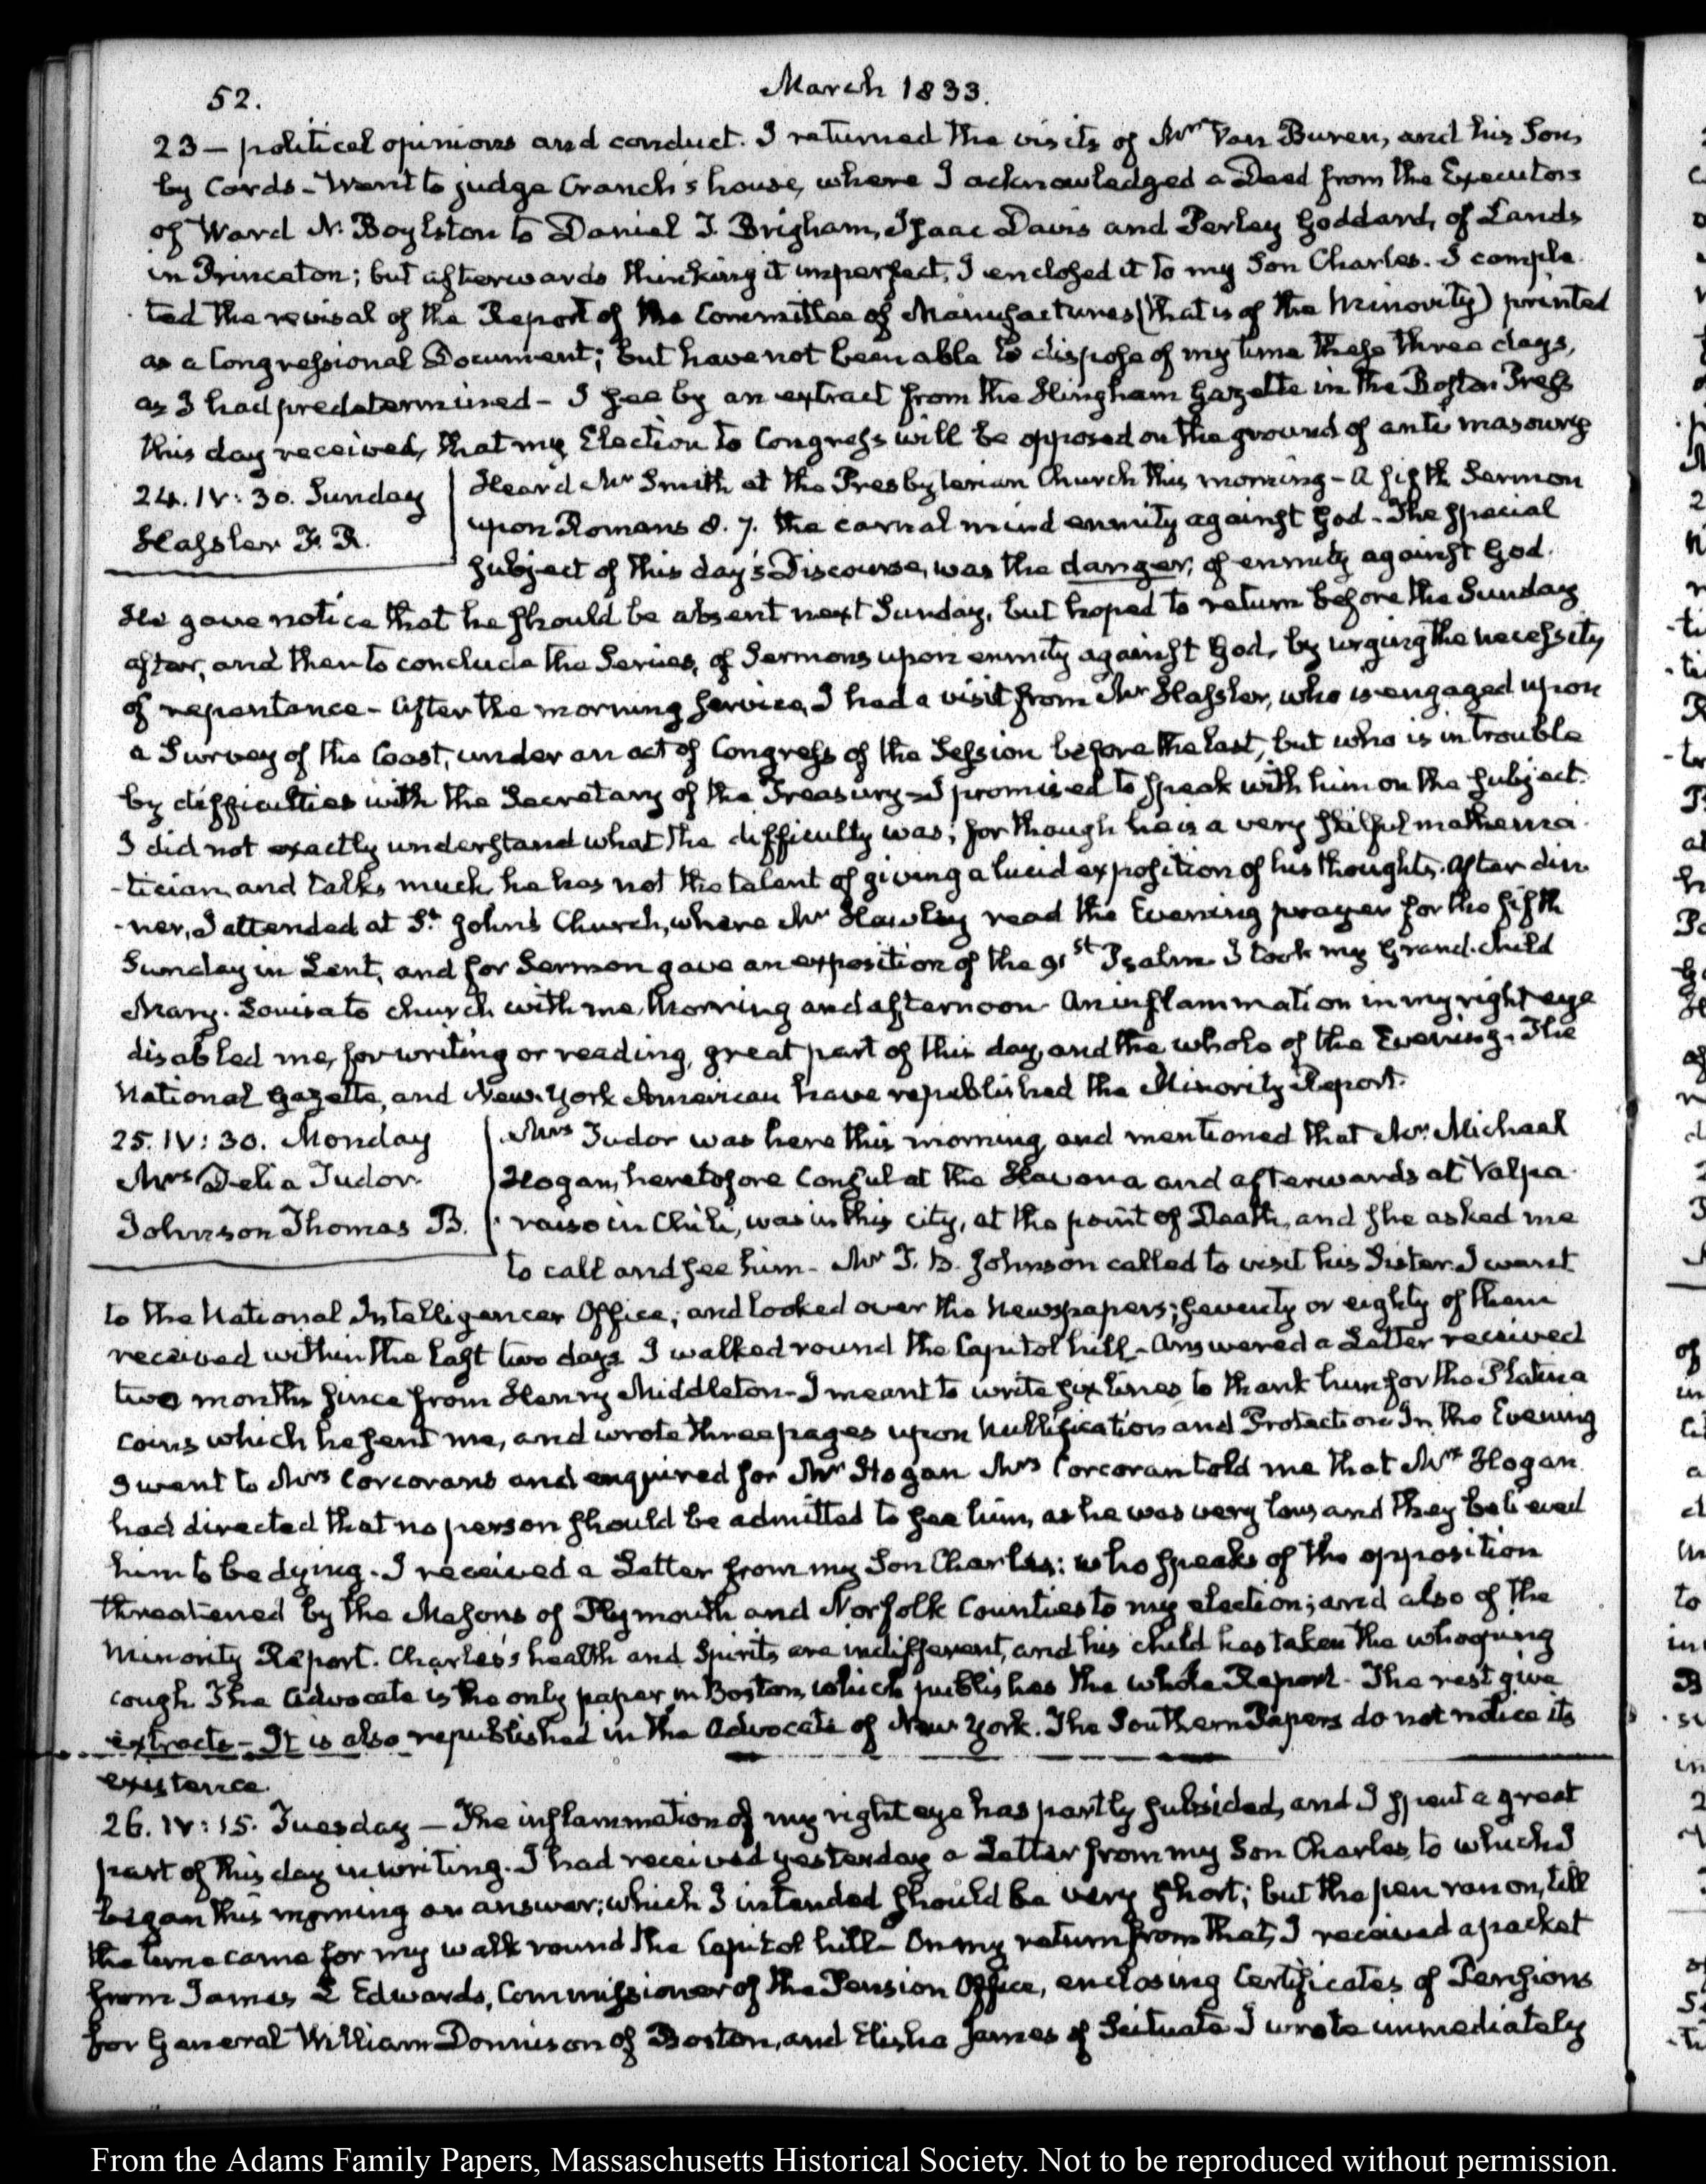 52.
March 1833.
23 — political opinions and conduct. I returned the visits of Mr Van Buren, and his Son,
by Cards - Went to judge Cranch's house, where I acknowledged a Deed from the Executors
of Ward N. Boylston to Daniel J. Brigham, Isaac Davis and Perley Goddard, of Lands
in Princeton; but afterwards thinking it imperfect, I enclosed it to my Son Charles. I comple-
ted the revisal of the Report of the Committee of Manufactures (that is of the Minority) printed
as a Congressional Document; but have not been able to dispose of my time these three days,
as I had predetermined - I see by an extract from the Hingham Gazette in the Boston Press
this day received, that my Election to Congress will be opposed on the ground of anti masonry
24. IV: 30. Sunday
Hassler F. R.
Heard Mr Smith at the Presbyterian Church this morning - A fifth Sermon
upon Romans 8. 7. the carnal mind enmity against God - The special
subject of this day's Discourse, was the danger, of enmity against God.
He gave notice that he should be absent next Sunday, but hoped to return before the Sunday
after, and then to conclude the Series, of Sermons upon enmity against God, by urging the necessity
of repentance - After the morning service, I had a visit from Mr Hassler, who is engaged upon
a Survey of the Coast, under an act of Congress of the Session before the last, but who is in trouble
by difficulties with the Secretary of the Treasury - I promised to speak with him on the subject.
I did not exactly understand what the difficulty was; for though he is a very skilful mathema-
-tician, and talks much, he has not the talent of giving a lucid exposition of his thoughts. After din-
-ner, I attended at St. John's Church, where Mr Hawley read the Evening prayer for the fifth
Sunday in Lent, and for Sermon gave an exposition of the 91st Psalm. I took my Grand-child
Mary-Louisa to church with me, morning and afternoon. An inflammation in my right eye
disabled me, for writing or reading, great part of this day, and the whole of the Evening. The
National Gazette, and New-York American have republished the Minority Report.
25. IV: 30. Monday
Mrs Delia Tudor.
Johnson Thomas B.
Mrs Tudor was here this morning, and mentioned that Mr Michael
Hogan, heretofore Consul at the Havana and afterwards at Valpa-
raiso in Chili, was in this city, at the point of Death, and she asked me
to call and see him - Mr T. B. Johnson called to visit his Sister. I went
to the National Intelligencer Office, and looked over the Newspapers; seventy or eighty of them
received within the last two days. I walked round the Capitol hill - Answered a Letter received
two months since from Henry Middleton - I meant to write six lines to thank him for the Platina
coins which he sent me, and wrote three pages upon Nullification and Protection. In the Evening
I went to Mrs Corcorans and enquired for Mr Hogan. Mrs Corcoran told me that Mrs Hogan
had directed that no person should be admitted to see him, as he was very low, and they believed
him to be dying. I received a Letter from my Son Charles: who speaks of the opposition
threatened by the Masons of Plymouth and Norfolk Counties to my election; and also of the
Minority Report. Charles's health and Spirits are indifferent, and his child has taken the whooping
cough. The Advocate is the only paper in Boston, which publishes the whole Report - The rest give
extracts - It is also republished in the Advocate of New York. The Southern Papers do not notice its
existence.
26. IV: 15. Tuesday — The inflammation of my right eye has partly subsided, and I spent a great
part of this day in writing. I had received yesterday a Letter from my Son Charles, to which I
began this morning an answer; which I intended should be very short; but the pen ran on, till
the time came for my walk round the Capitol hill - On my return from that, I received a packet
from James L Edwards, Commissioner of the Pension Office, enclosing Certificates of Pensions
for General William Donnison of Boston, and Elisha James of Scituate. I wrote immediately
From the Adams Family Papers, Massachusetts Historical Society. Not to be reproduced without permission.